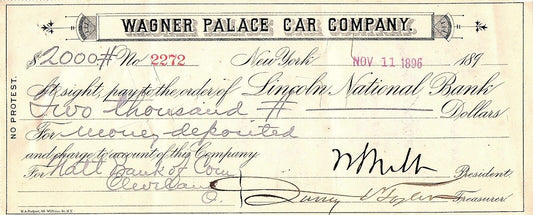 WAGNER PALACE CAR COMPANY.
$2000 # No 2272 New York NOV 11 1896 189
At sight, pay to the order of Lincoln National Bank
Two thousand # Dollars
For money deposited
and charge to account of this Company
For Natl Bank of Com President
Cleveland
O. Treasurer
NO PROTEST.